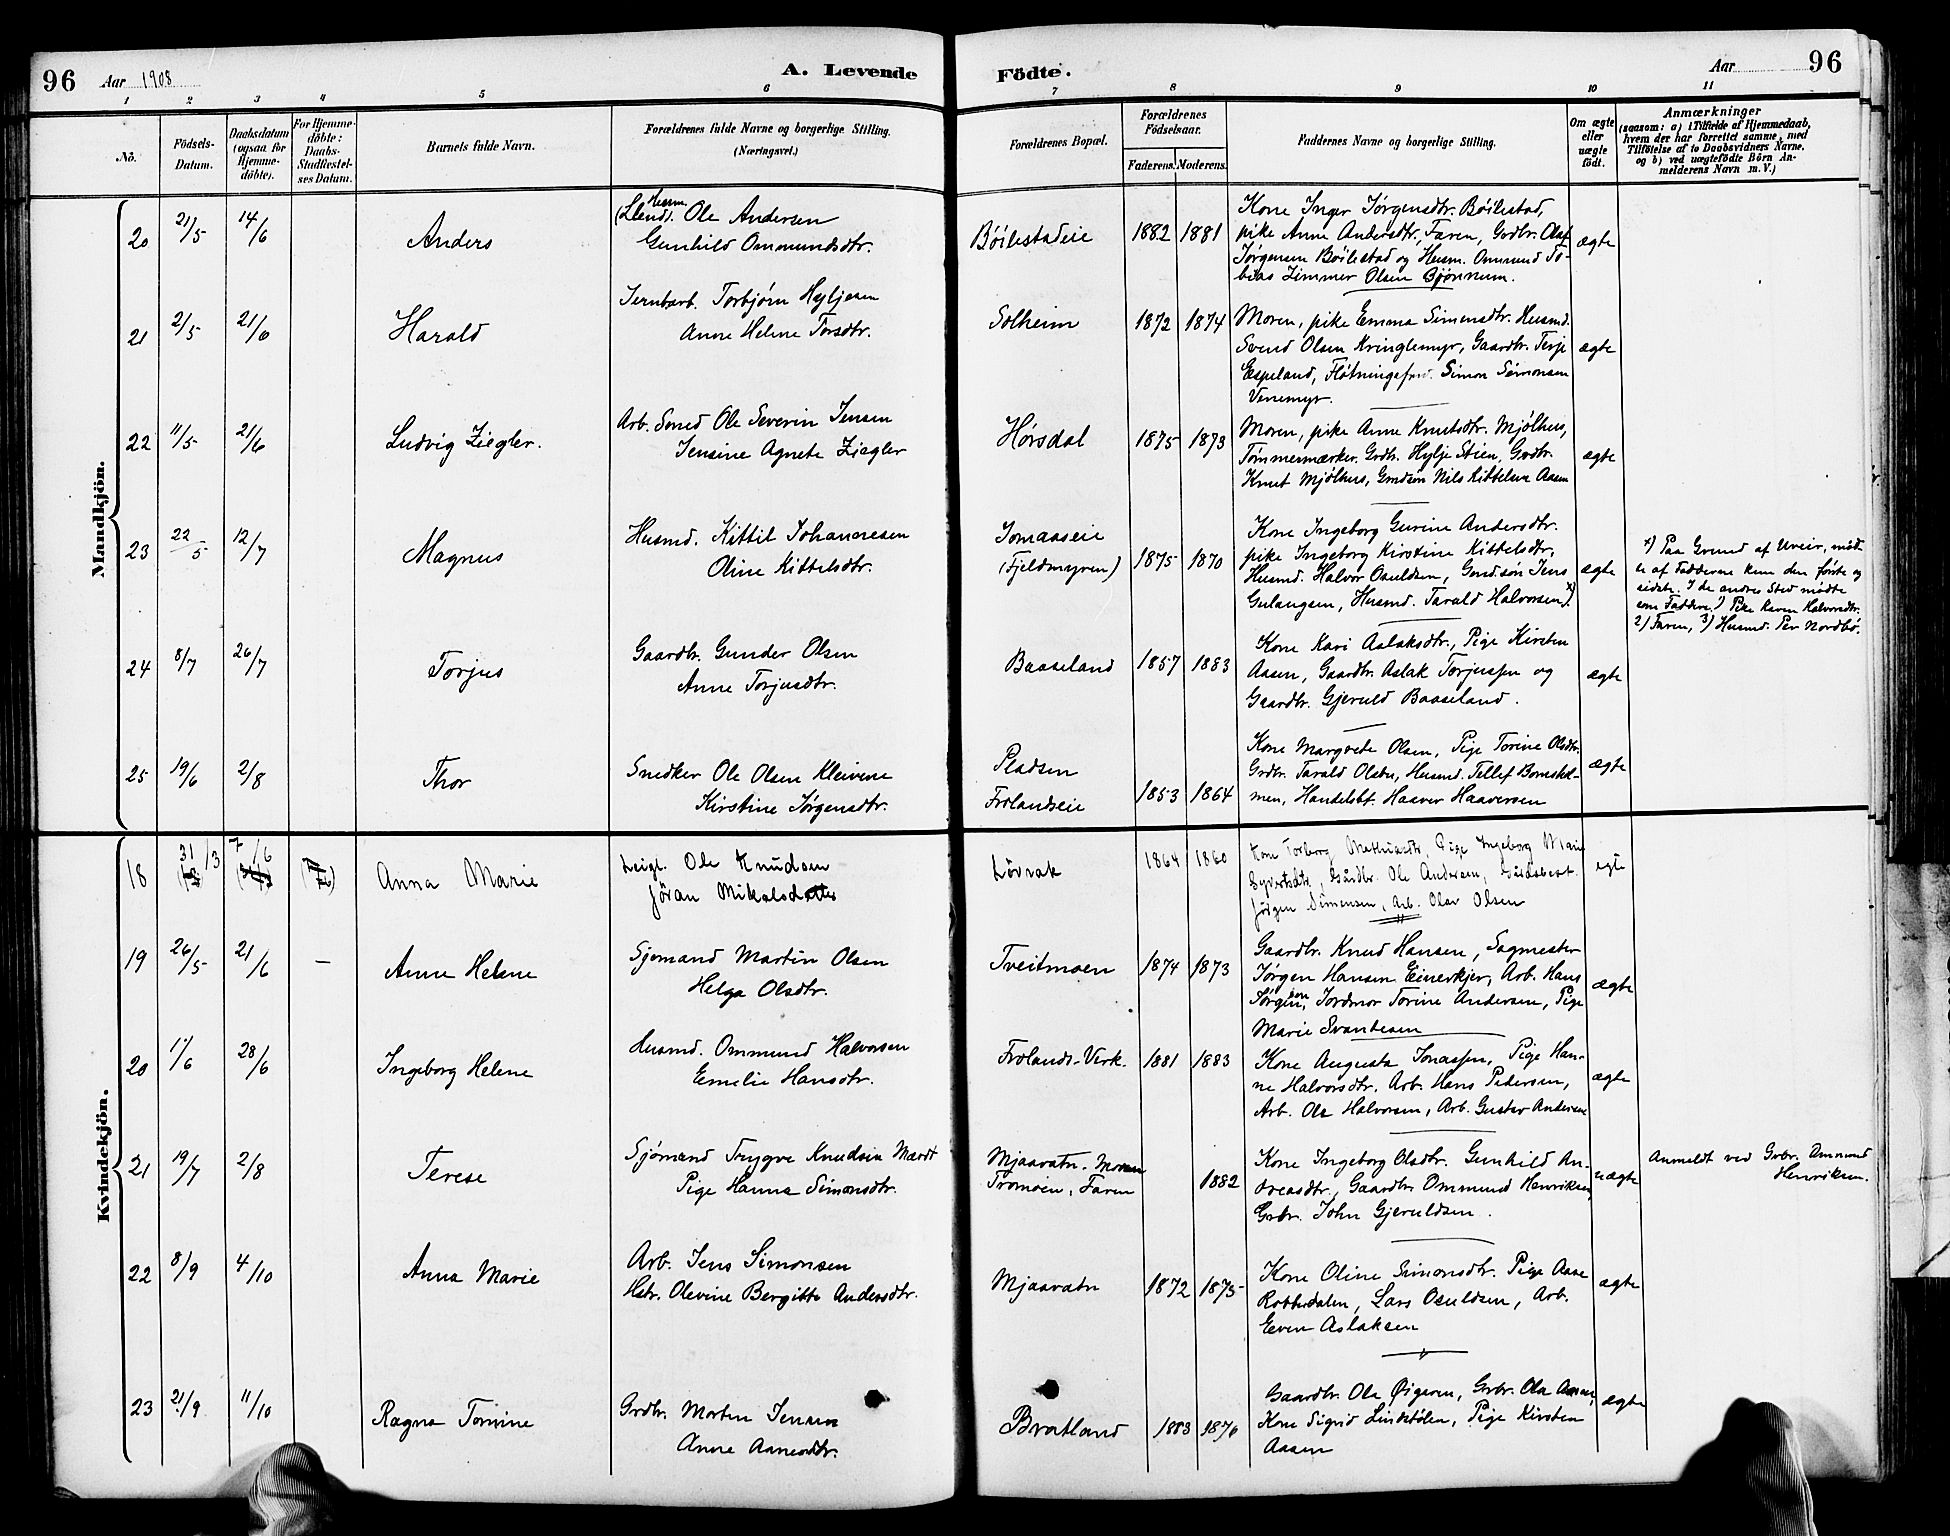 96 Aar 1908 A. Levende Födte. Aar 96
1 2 3 4 5 6 7 8 9 10 11
No. Födsels-Datum. Daabsdatum (ogsaa for Hjemme-döbte). For Hjemme-döbte: Daabs-Stadfæstel-ses Datum. Barnets fulde Navn. Forældrenes fulde Navne og borgerlige Stilling. (Næringsvei.) Forældrenes Bopæl. Forældrenes Födselsaar. Faderens. Moderens. Faddernes Navne og borgerlige Stilling. Om ægte eller uægte födt. Anmærkninger (saasom: a) i Tilfælde af Hjemmedaab, hvem der har forrettet samme, med Tilföielse af to Daabsvidners Navne, og b) ved uægtefödte Börn An-melderens Navn m. V.)
Mandkjön.
20 21/5 14/6 Anders Husm. Ole Andersen
Gunhild Ommundsdtr.
Böilestadeie 1882 1881
Kone Inger Jørgensdtr. Böilestad,
pike Anne Andersdtr, Faren, Grdbr. Olaf
Jørgensen Böilestad og Husm. Ommund To-
bias Zimmer Olsen Bjönnum.
ægte
21 2/5 21/6 Harald
Jernbarb. Torbjørn Hyljesen
Anne Helene Torsdtr.
Solheim 1872 1874
Moren, pike Emma Simensdtr. Husmd.
Svend Olsen Kringlemyr, Gaardbr. Terje
Espeland, Fløtningsfm. Simon Simonsen
Venemyr.
ægte
22 11/5 21/6 Ludvig Ziegler.
Arb. Smed Ole Severin Jensen
Jensine Agnete Ziegler
Hörsdal 1875 1873
Moren, pike Anne Knutsdtr. Mjølhus,
Tømmermærker. Grdbr. Hylje Stien, Grdbr.
Knut Mjølhus, Grndsøn Nils Kittelsen Aasen
ægte
23 22/5 12/7 Magnus
Husmd. Kittil Johannesen
Oline Kittelsdtr.
Jomaaseie
(Fjeldmyren) 1875 1870
Kone Ingeborg Gurine Andersdtr.
pike Ingeborg Kirstine Kittelsdtr,
Husmd. Halvor Osuldsen, Grndsøn Jens
Gulangsen, Husmd. Tarald Halvorsen x)
ægte
x) Paa Grund af Uveir, mød-
te af Fadderne kun den første og
sidste. I de andres Sted mødte
som Faddere 1) Pike Karen Halvorsdtr.
2) Faren, 3) Husmd. Per Nordbö.
24 8/7 26/7 Torjus
Gaardbr. Gunder Olsen
Anne Torjusdtr.
Baaseland 1857 1883
Kone Kari Aslaksdtr, Pige Kirsten
Aasen, Gaardbr. Aslak Torjussen og
Gaardbr. Gjeruld Baaseland.
ægte
25 19/6 2/8 Thor
Snedker Ole Olsen Kleivene
Kirstine Jørgensdtr.
Pladsen
Frolandseie 1853 1864
Kone Margrete Olsen, Pige Torine Olsdtr.
Grdbr. Tarald Olsbu, Husmd. Tellef
men, Handelsbt. Haaver Haaversen
ægte
Kvindekjön.
18 31/3 7/6 Anna Marie
Leigl. Ole Knudsen
Jöran Mikalsdatter
Lövrak 1864 1860
Kone Torborg Mathiasdtr, Pige Ingeborg Marie
Syvertsdtr, Gårdbr. Ole Andersen, Gårdsbest.
Jörgen Simensen, Arb. Olav Olsen
egte
19 26/5 21/6 — Anne Helene
Sjømand Martin Olsen
Helga Olsdtr.
Tveitmoen 1874 1873
Gaardbr. Knud Hansen, Sagmester
Jørgen Hansen Einerkjer, Arb. Hans
Jørgensen, Jordmor Torine Andersen, Pige
Marie Svendsen
ægte
20 1/6 28/6 Ingeborg Helene
Husmd. Ommund Halvorsen
Emelie Hansdtr.
Frolands-Verk. 1881 1883
Kone Augusta Jonassen, Pige Han-
ne Halvorsdtr. Arb. Hans Pedersen,
Arb. Ole Halvorsen, Arb. Gustav Andersen
ægte
21 19/7 2/8 Terese
Sjömand Trygve Knudsen Mærdt
Pige Hanna Simonsdtr.
Mjaavatn. Moren
Tromøen, Faren 1882
Kone Ingeborg Olsdtr. Gunhild An-
dreasdtr, Gaardbr. Ommund Henriksen,
Grbr. John Gjeruldsen.
uægte
Anmeldt ved Grbr. Ommund
Henriksen.
22 8/9 4/10 Anna Marie
Arb. Jens Simonsen
Hstr. Olevine Bergitte Andersdtr.
Mjaavatn 1872 1875
Kone Oline Simonsdtr. Pige Aase
Robberdalen, Lars Osuldsen, Arb.
Even Aslaksen
ægte
23 21/9 11/10 Ragna Tomine
Grdbr. Morten Jensen
Anne Aanesdtr.
Bratland 1883 1876
Gaardbr. Ole Øigaren, Grbr. Ola Aasen,
Kone Sigrid Lindstölen, Pige Kirsten
Aasen
ægte